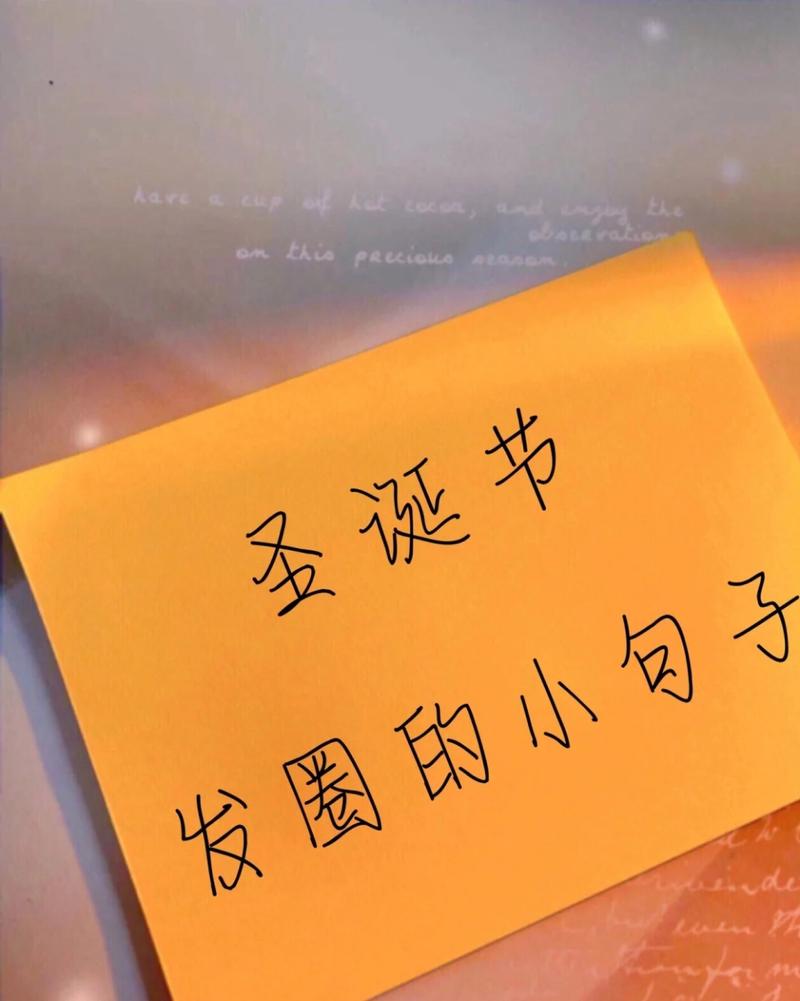 have a cup of hot cocoa, and enjoy the
observation
on this precious season.
圣诞节
发圈的小句子
even